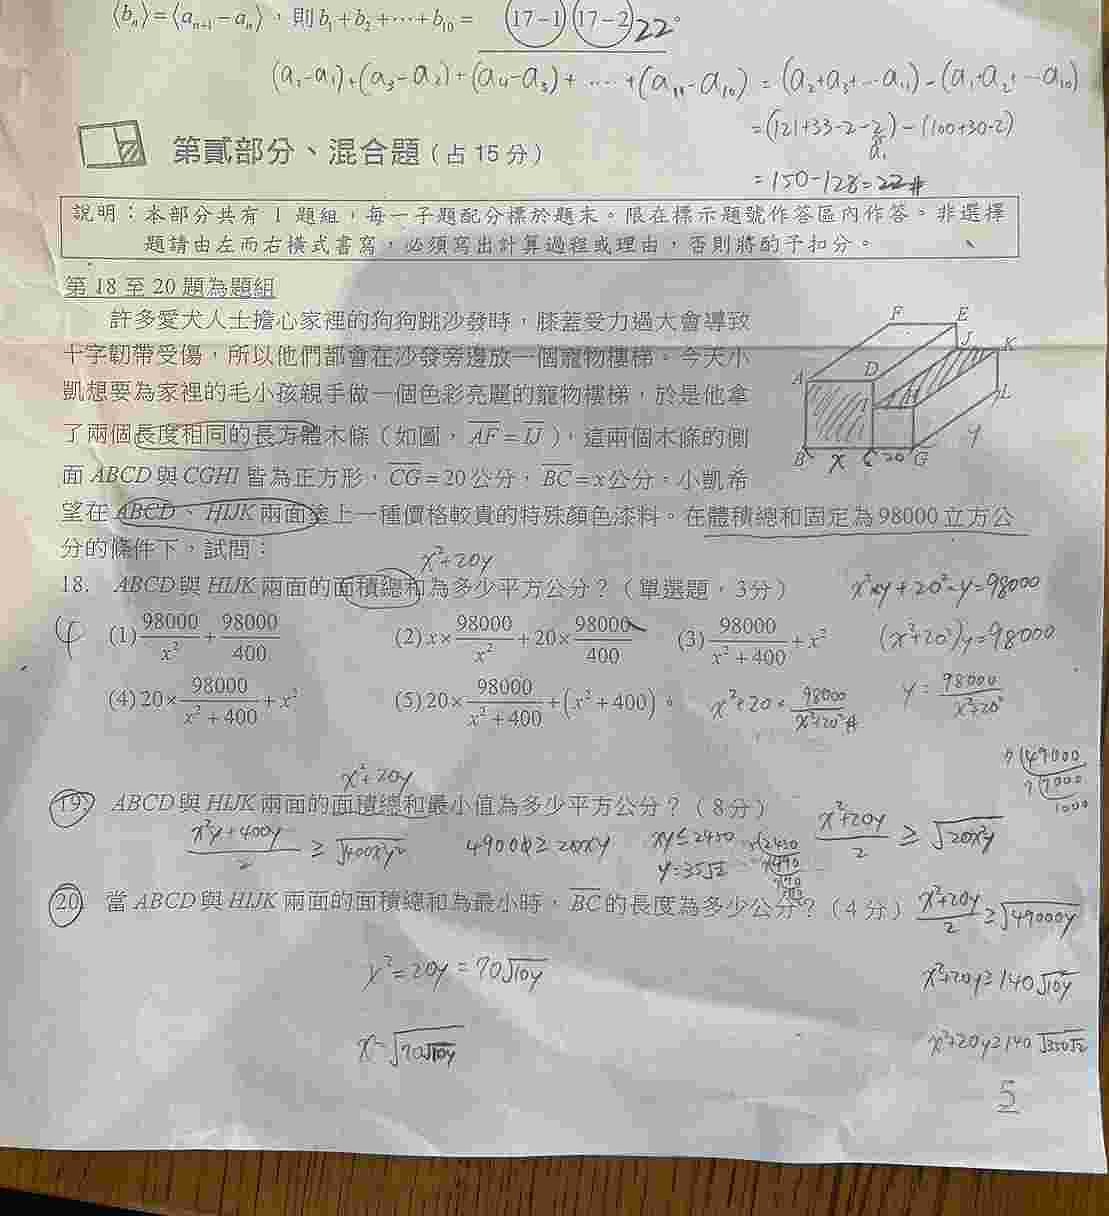 ⟨bₙ⟩=⟨aₙ₊₁−aₙ⟩,則b₁+b₂+⋯+b₁₀= (17−1)(17−2) 22。
(a₂-a₁)+(a₃-a₂)+(a₄-a₃)+……+(a₁₁-a₁₀) = (a₂+a₃+…a₁₁)-(a₁+a₂+…a₁₀)
=(121+33-2-2)-(100+30-2)
a₁
=150-128=22#
第貳部分、混合題(占15分)
說明:本部分共有 1 題組,每一子題配分標於題末。限在標示題號作答區內作答。非選擇
題請由左而右橫式書寫,必須寫出計算過程或理由,否則將酌予扣分。
第 18 至 20 題為題組
許多愛犬人士擔心家裡的狗狗跳沙發時,膝蓋受力過大會導致
十字韌帶受傷,所以他們都會在沙發旁邊放一個寵物樓梯。今天小
凱想要為家裡的毛小孩親手做一個色彩亮麗的寵物樓梯,於是他拿
了兩個長度相同的長方體木條(如圖,AF=IJ),這兩個木條的側
面 ABCD 與 CGHI 皆為正方形,CG=20公分,BC=x公分。小凱希
望在 ABCD、HIJK 兩面塗上一種價格較貴的特殊顏色漆料。在體積總和固定為98000立方公
分的條件下,試問:
F E
J K
A D
I H L
y
B x C 20 G
x²+20y
18. ABCD與 HIJK 兩面的面積總和為多少平方公分?(單選題,3分)
x²×y+20²×y=98000
4 (1) 98000/x² + 98000/400 (2) x×98000/x² + 20×98000/400 (3) 98000/(x²+400) + x²
(x²+20²)y=98000
(4) 20×98000/(x²+400) + x² (5) 20×98000/(x²+400) + (x²+400)。
x²+20×98000/(x²+20²)#
y=98000/(x²+20²)
7)49000
7)7000
1000
x²+20y
19. ABCD 與 HIJK 兩面的面積總和最小值為多少平方公分?(8分)
(x²y+400y)/2 ≥ √(400x²y²) 49000≥20xy xy≤2450
y=35√2
(x²+20y)/2 ≥ √(20x²y)
20. 當 ABCD 與 HIJK 兩面的面積總和為最小時,BC的長度為多少公分?(4分)
(x²+20y)/2 ≥ √(49000y)
x²=20y=70√(10y)
x²+20y≥140√(10y)
x=√(70√(10y))
x²+20y≥140√(350√2)
5